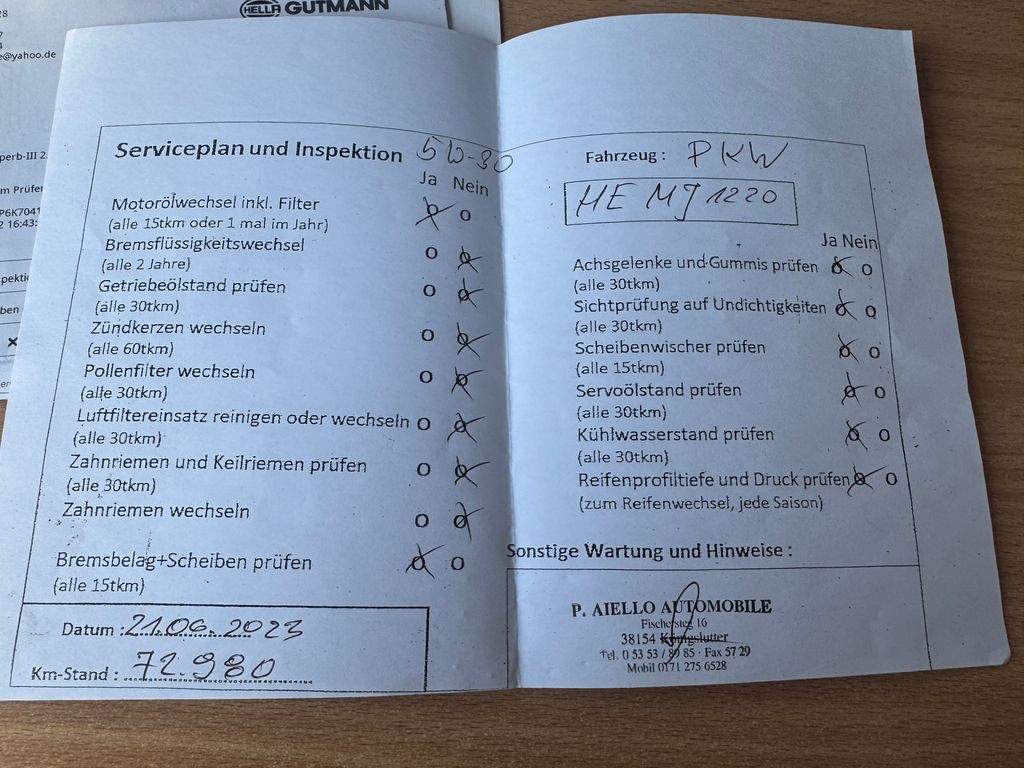 HELLA GUTMANN
28
7
4
e@yahoo.de
perb-III 2.
m Prüfer
P6K7041
2 16:43:
pektio
ben
Serviceplan und Inspektion 5W-30
Ja Nein
Motorölwechsel inkl. Filter
(alle 15tkm oder 1 mal im Jahr)
Bremsflüssigkeitswechsel
(alle 2 Jahre)
Getriebeölstand prüfen
(alle 30tkm)
Zündkerzen wechseln
(alle 60tkm)
Pollenfilter wechseln
(alle 30tkm)
Luftfiltereinsatz reinigen oder wechseln
(alle 30tkm)
Zahnriemen und Keilriemen prüfen
(alle 30tkm)
Zahnriemen wechseln
Bremsbelag+Scheiben prüfen
(alle 15tkm)
Datum : 21.06.2023
Km-Stand : 72.980
Fahrzeug : PKW
HE MJ 1220
Ja Nein
Achsgelenke und Gummis prüfen
(alle 30tkm)
Sichtprüfung auf Undichtigkeiten
(alle 30tkm)
Scheibenwischer prüfen
(alle 15tkm)
Servoölstand prüfen
(alle 30tkm)
Kühlwasserstand prüfen
(alle 30tkm)
Reifenprofiltiefe und Druck prüfen
(zum Reifenwechsel, jede Saison)
Sonstige Wartung und Hinweise :
P. AIELLO AUTOMOBILE
Fischersteg 16
38154 Königslutter
Tel. 0 53 53 / 89 85 · Fax 57 29
Mobil 0171 275 6528